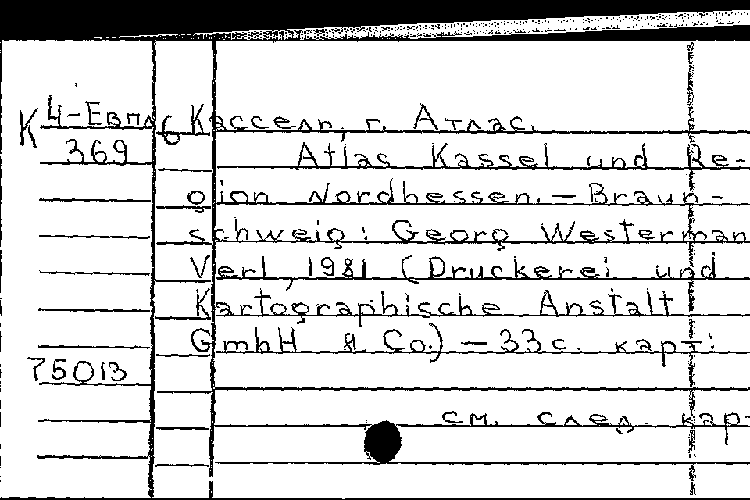 К 4-Евпл 6 Кассель, г. Атлас.
369 Atlas Kassel und Re-
gion Nordhessen. — Braun-
schweig: Georg Westerman
Verl, 1981 (Druckerei und
Kartographische Anstalt
GmbH & Co.) — 33 с. карт:
75013
см. след. кар